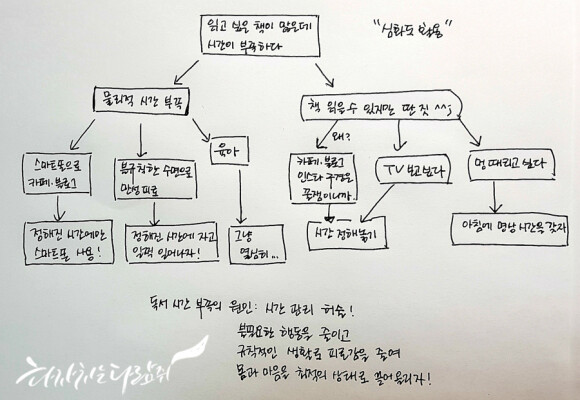 읽고 싶은 책이 많은데
시간이 부족하다
"심화도 활용"
물리적 시간 부족
책 읽을수 있지만 딴 짓 ^^;
왜?
스마트폰으로
카페·블로그
불규칙한 수면으로
만성피로
육아
카페·블로그
인스타 구경은
꿀잼이니까
TV 보고싶다
멍 때리고 싶다
정해진 시간에만
스마트폰 사용!
정해진 시간에 자고
일찍 일어나자!
그냥
열심히...
시간 정해놓기
아침에 명상시간을 갖자
독서 시간 부족의 원인: 시간 관리 허술!
불필요한 행동을 줄이고
규칙적인 생활로 피로감을 줄여
몸과 마음을 최적의 상태로 끌어올리자!
다람쥐